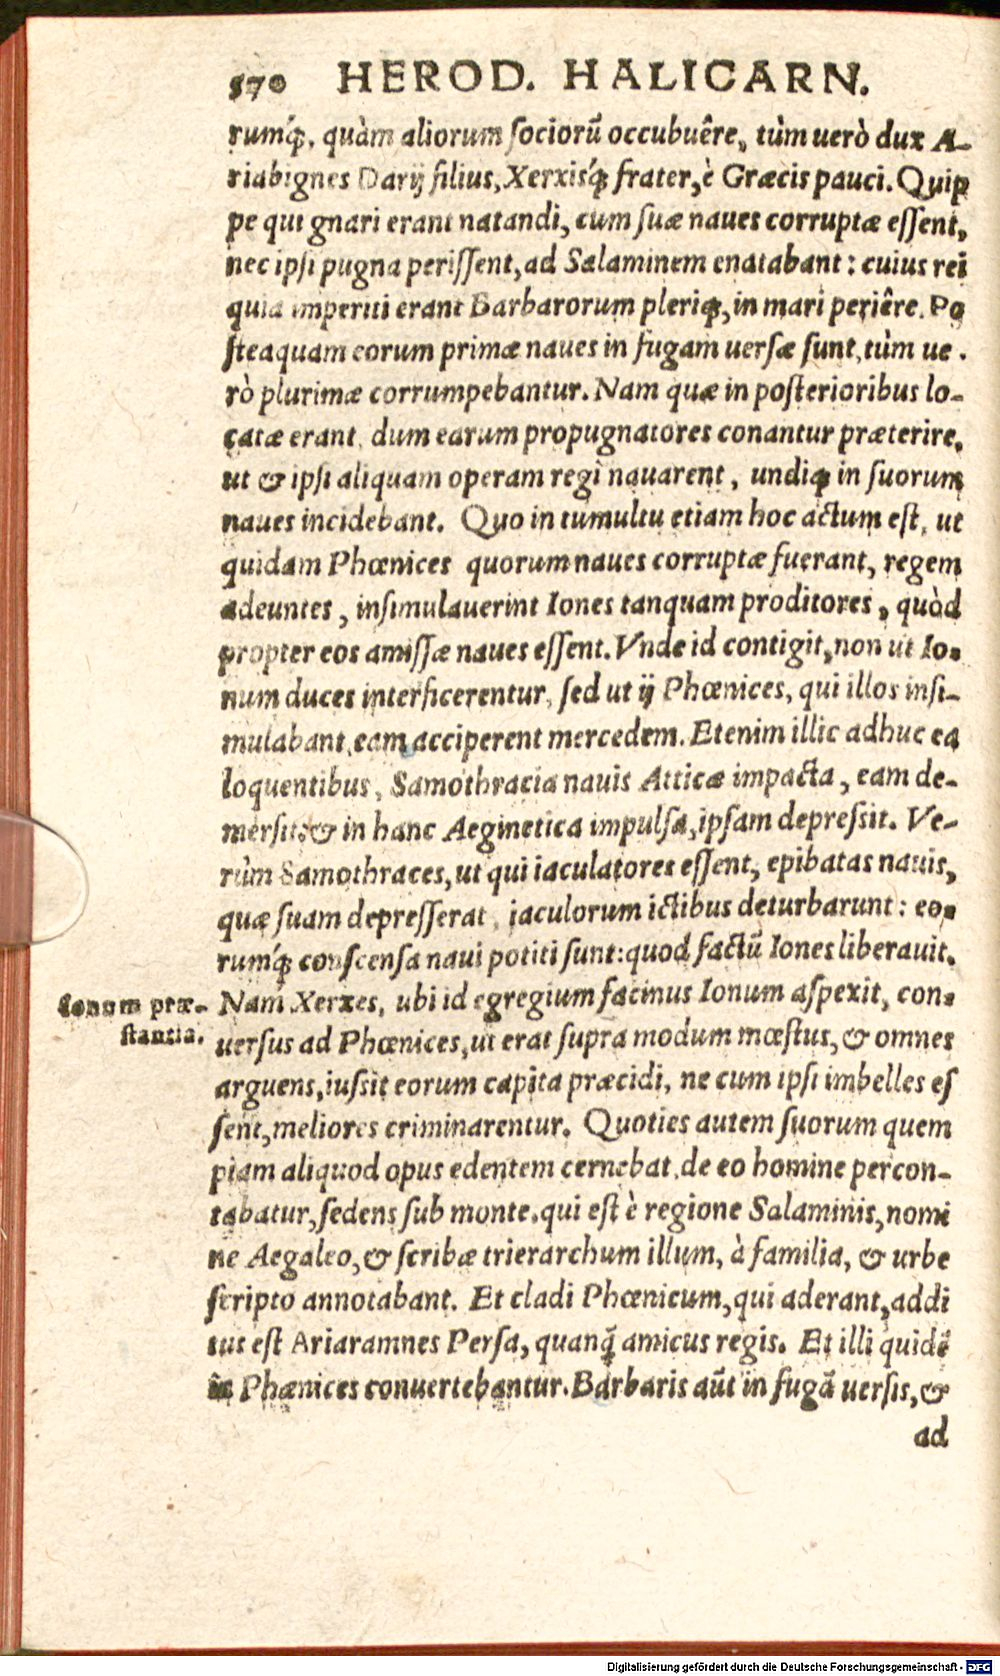 570 HEROD. HALICARN.
rumq́ꝫ, quàm aliorum ſociorũ occubuêre, tùm uerò dux A-
riabignes Darij filius, Xerxisq́ꝫ frater, è Græcis pauci. Quip
pe qui gnari erant natandi, cum ſuæ naues corruptæ eſſent,
nec ipſi pugna periſſent, ad Salaminem enatabant: cuius rei
quia imperiti erant Barbarorum pleriqꝫ, in mari periêre. Po
ſteaquam eorum primæ naues in fugam uerſæ ſunt, tùm ue.
rò plurimæ corrumpebantur. Nam quæ in poſterioribus lo-
catæ erant, dum earum propugnatores conantur præterire,
ut & ipſi aliquam operam regi nauarent, undiqꝫ in ſuorum
naues incidebant. Quo in tumultu etiam hoc actum eſt, ut
quidam Phœnices quorum naues corruptæ fuerant, regem
adeuntes, inſimulauerint Iones tanquam proditores, quòd
propter eos amiſſæ naues eſſent. Vnde id contigit, non ut Io-
num duces interficerentur, ſed ut ij Phœnices, qui illos inſi-
mulabant, eam acciperent mercedem. Etenim illic adhuc ea
loquentibus, Samothracia nauis Atticæ impacta, eam de-
merſit: & in hanc Aeginetica impulſa, ipſam depreſsit. Ve-
rùm Samothraces, ut qui iaculatores eſſent, epibatas nauis,
quæ ſuam depreſſerat, iaculorum ictibus deturbarunt: eo-
rumq́ꝫ conſcenſa naui potiti ſunt: quod factũ Iones liberauit.
Ionum præ-
ſtantia.
Nam Xerxes, ubi id egregium facinus Ionum aſpexit, con-
uerſus ad Phœnices, ut erat ſupra modum mœſtus, & omnes
arguens, iuſsit eorum capita præcidi, ne cum ipſi imbelles eſ
ſent, meliores criminarentur. Quoties autem ſuorum quem
piam aliquod opus edentem cernebat, de eo homine percon-
tabatur, ſedens ſub monte, qui eſt è regione Salaminis, nomi
ne Aegaleo, & ſcribæ trierarchum illum, à familia, & urbe
ſcripto annotabant. Et cladi Phœnicum, qui aderant, addi
tus eſt Ariaramnes Perſa, quanq̃ amicus regis. Et illi quidẽ
in Phænices conuertebantur. Barbaris aũt in fugã uerſis, &
ad
Digitalisierung gefördert durch die Deutsche Forschungsgemeinschaft - DFG